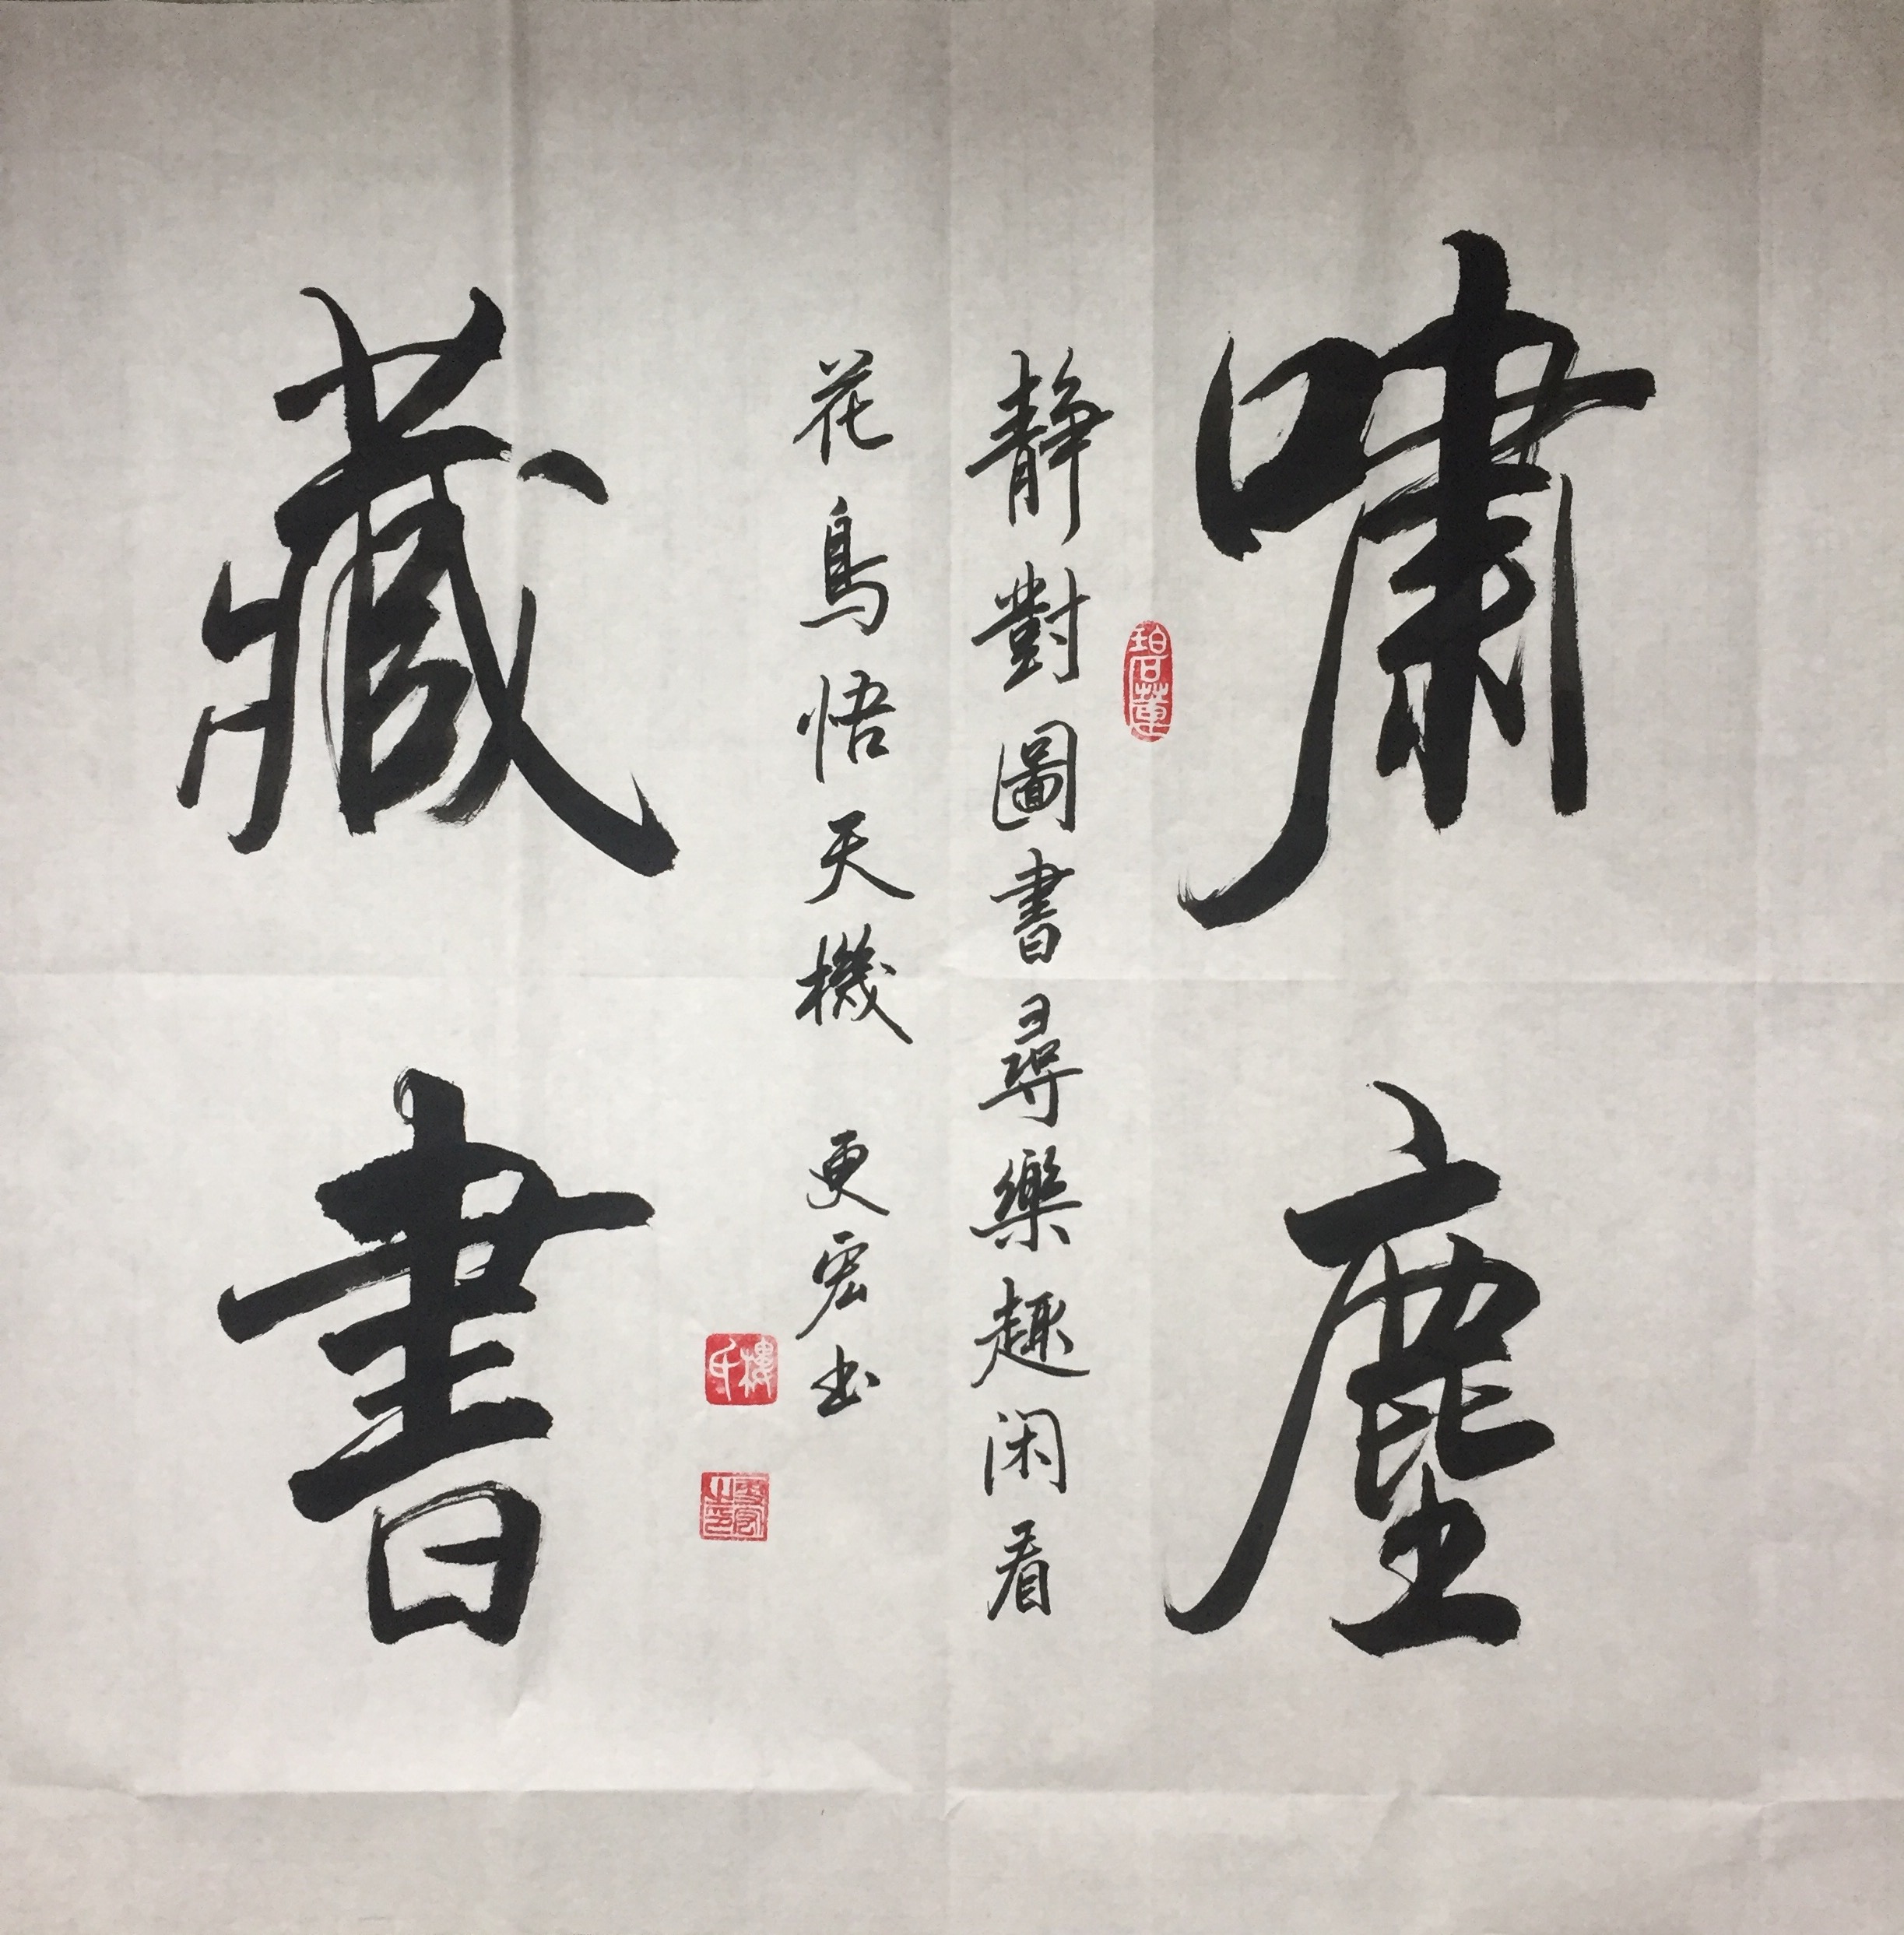 嘯塵
靜對圖書尋樂趣閑看
花鳥悟天機 更宏书
藏書
碧蓮
樓氏